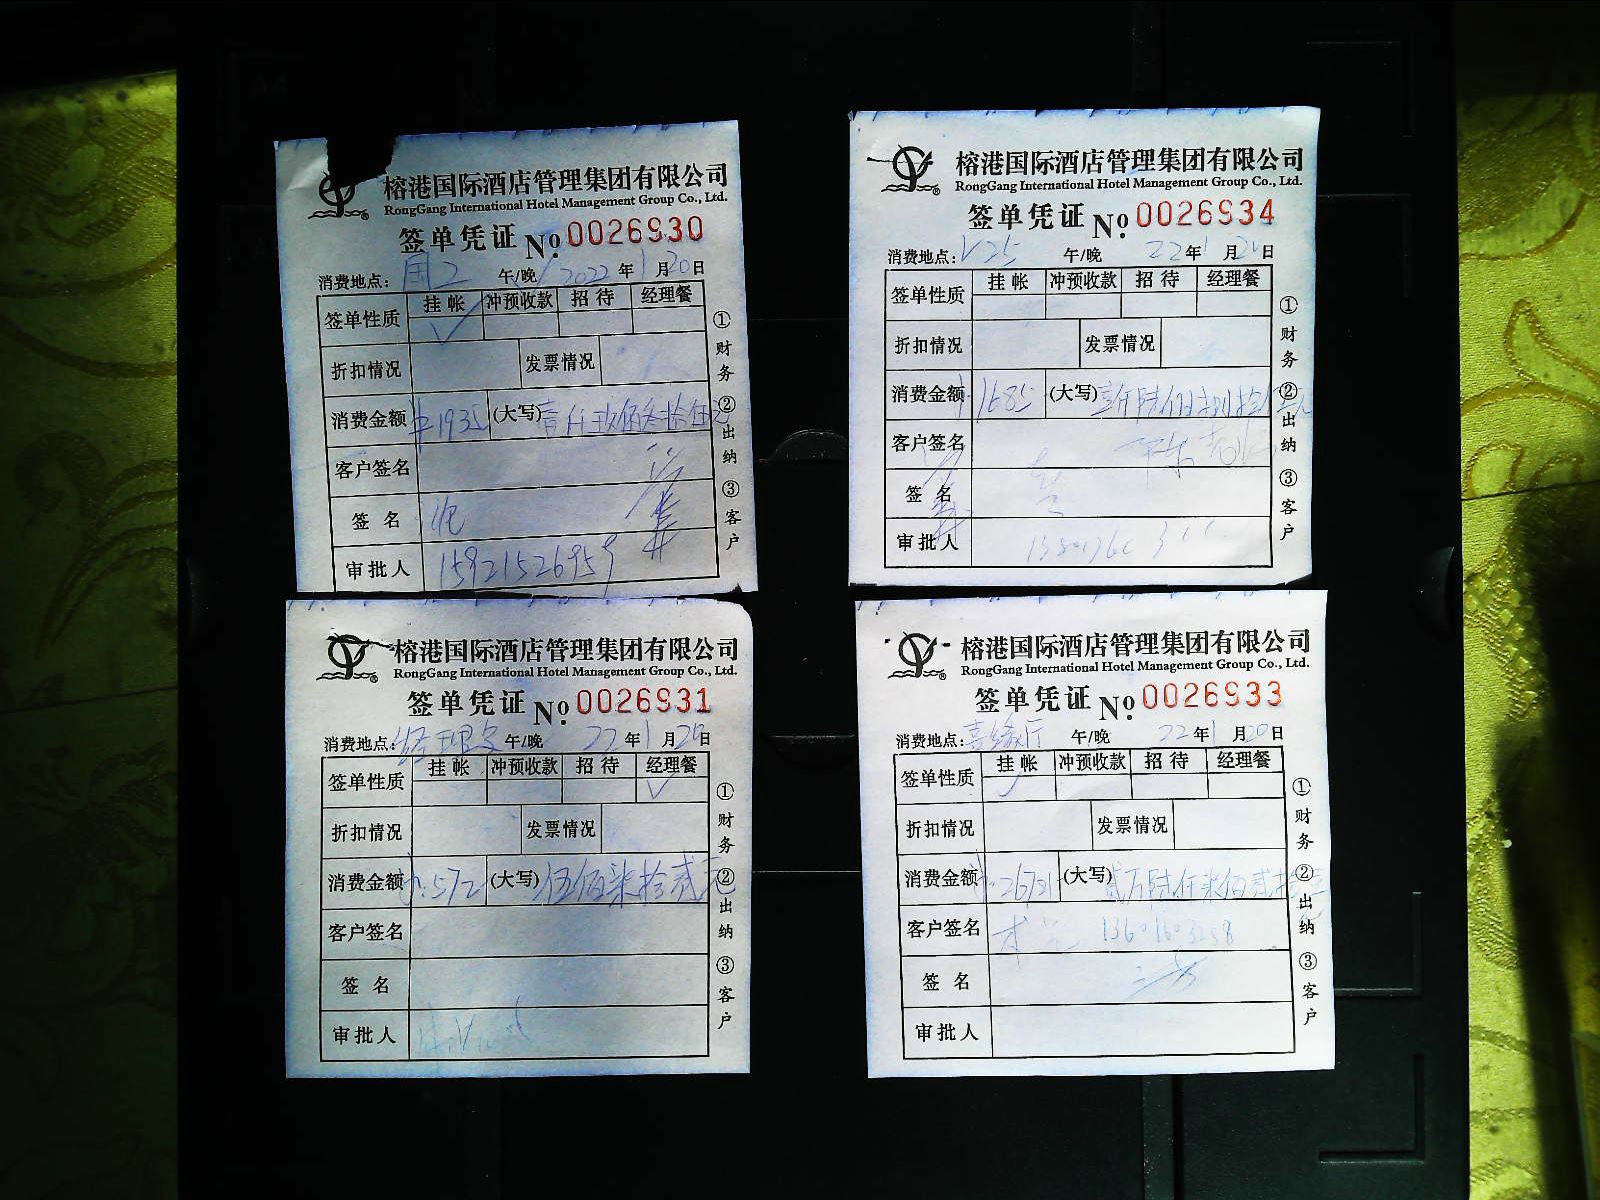 榕港国际酒店管理集团有限公司
RongGang International Hotel Management Group Co., Ltd.
签单凭证 No. 0026930
消费地点: 午/晚 2022年1月20日
签单性质 挂帐 冲预收款 招待 经理餐
折扣情况 发票情况
消费金额 ¥1935 (大写) 壹仟玖佰叁拾伍元
客户签名
签名
审批人 15921526959
①财务 ②出纳 ③客户
榕港国际酒店管理集团有限公司
RongGang International Hotel Management Group Co., Ltd.
签单凭证 No. 0026934
消费地点: V25 午/晚 22年1月20日
签单性质 挂帐 冲预收款 招待 经理餐
折扣情况 发票情况
消费金额 1685 (大写) 壹仟陆佰捌拾伍元
客户签名
签名
审批人
①财务 ②出纳 ③客户
榕港国际酒店管理集团有限公司
RongGang International Hotel Management Group Co., Ltd.
签单凭证 No. 0026931
消费地点: 经理 午/晚 22年1月20日
签单性质 挂帐 冲预收款 招待 经理餐
折扣情况 发票情况
消费金额 ¥:572 (大写) 伍佰柒拾贰元
客户签名
签名
审批人
①财务 ②出纳 ③客户
榕港国际酒店管理集团有限公司
RongGang International Hotel Management Group Co., Ltd.
签单凭证 No. 0026933
消费地点: 喜缘厅 午/晚 22年1月20日
签单性质 挂帐 冲预收款 招待 经理餐
折扣情况 发票情况
消费金额 ¥:26721 (大写) 贰万陆仟柒佰贰拾
客户签名
签名
审批人
①财务 ②出纳 ③客户